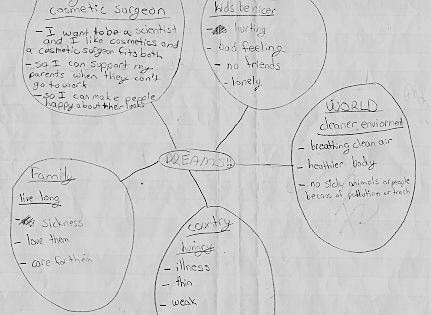 cosmetic surgeon
- I want to be a scientist
and I like cosmetics and
a cosmetic surgeon fits both
- so I can support my
parents when they can't
go to work
- so I can make people
happy about their looks
kids be nicer
- hurting
- bad feeling
- no friends
- lonely
WORLD
cleaner enviormet
- breathing clean air
- healthier body
- no sickly animals or people
becaus of pollution or trash
DREAMS!!
Family
live long
- sickness
- love them
- care for them
country
hungry
- illness
- thin
- weak